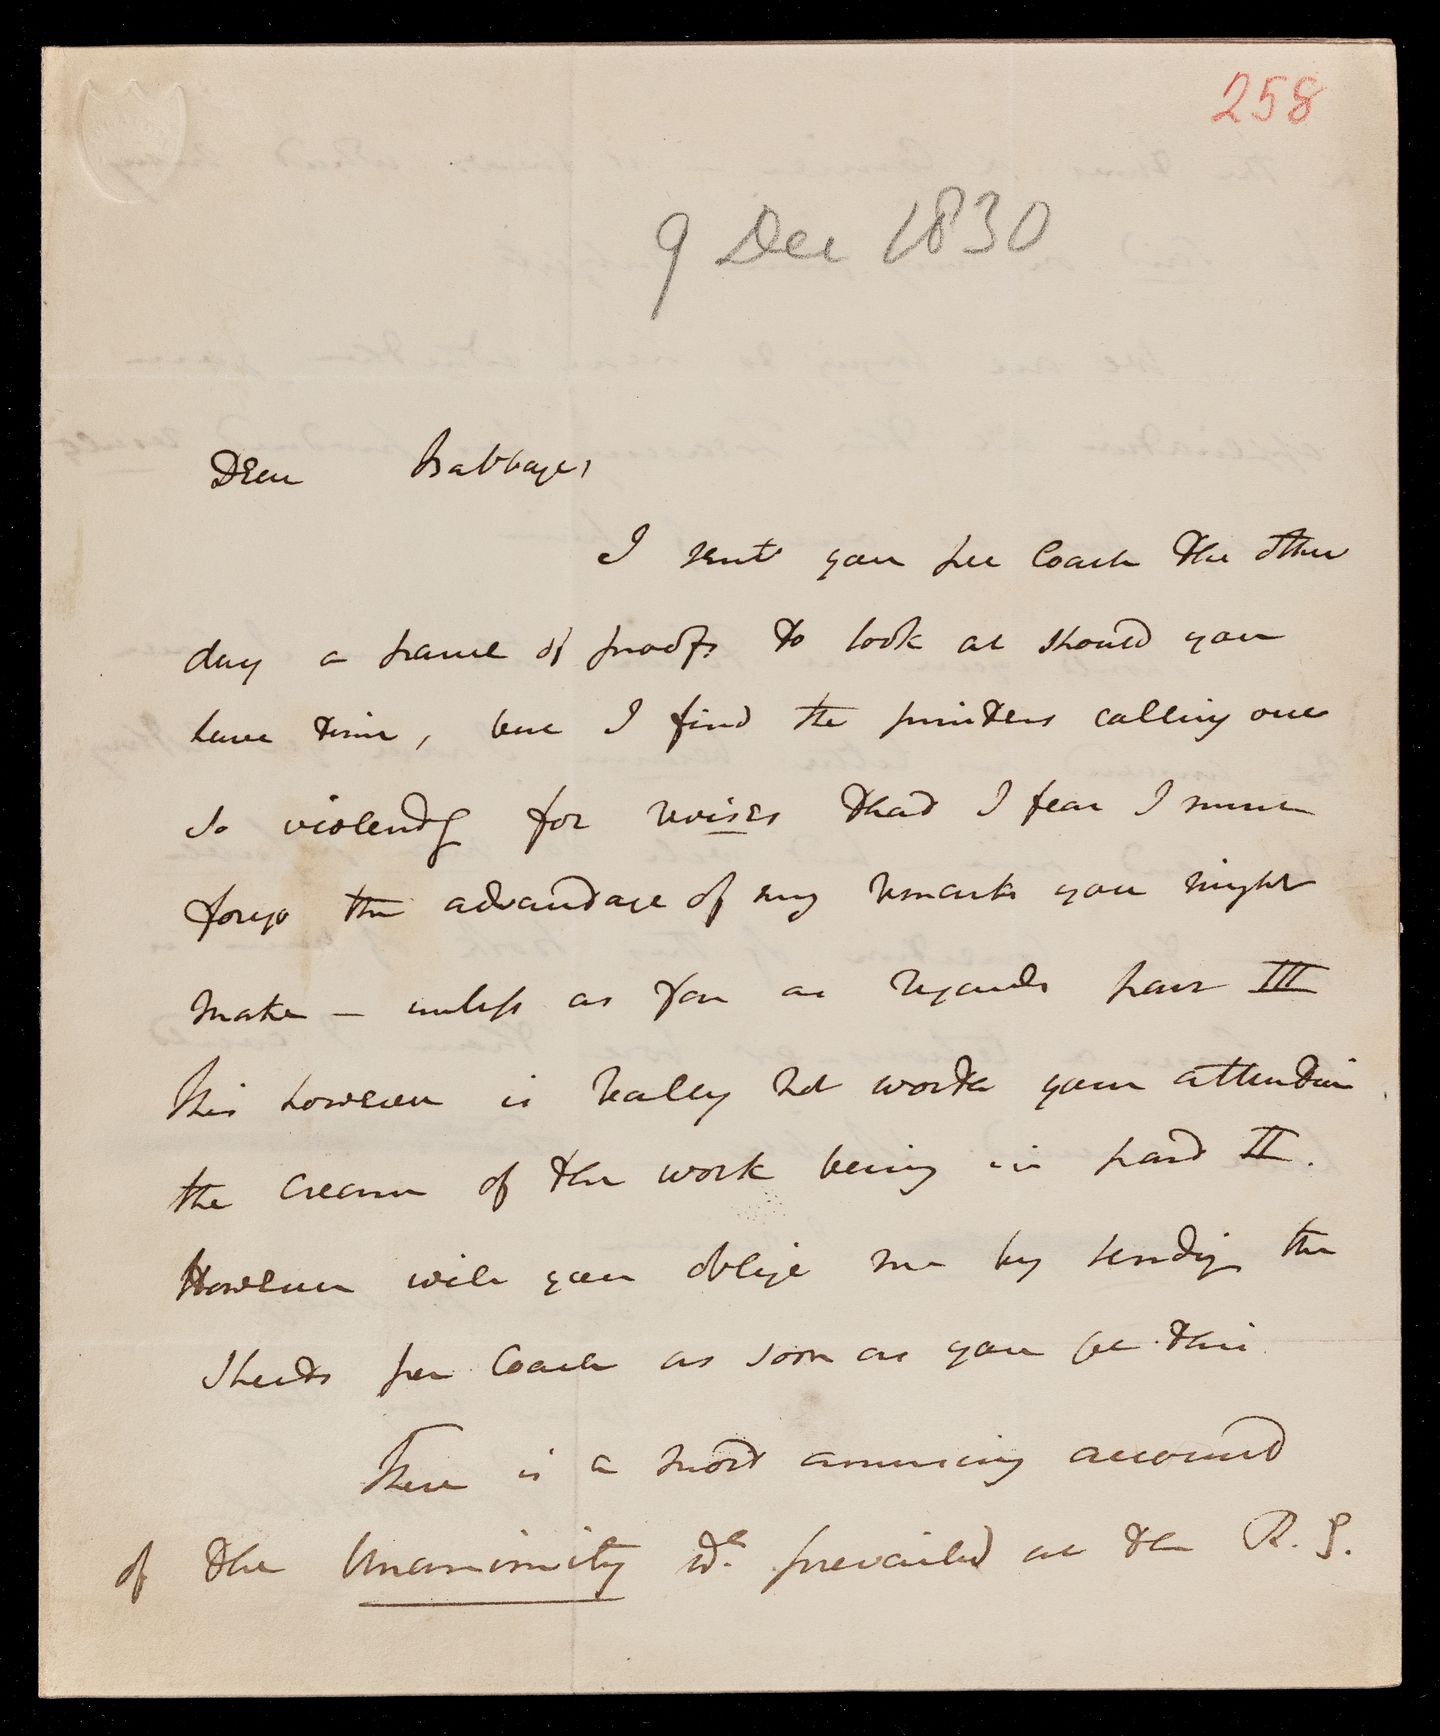 258
9 Dec 1830
Dear Babbage,
I sent you per Coach the other
day a parcel of proofs to look at should you
have time, but I find the printers calling out
so violently for revises that I fear I must
forego the advantage of any remarks you might
make – unless as far as regards part III
This however is really not worth your attention
the cream of the work being in part II.
However will you oblige me by sending the
sheets per Coach as soon as you get this
There is a most amusing account
of the Unanimity wh prevailed at the R. S.